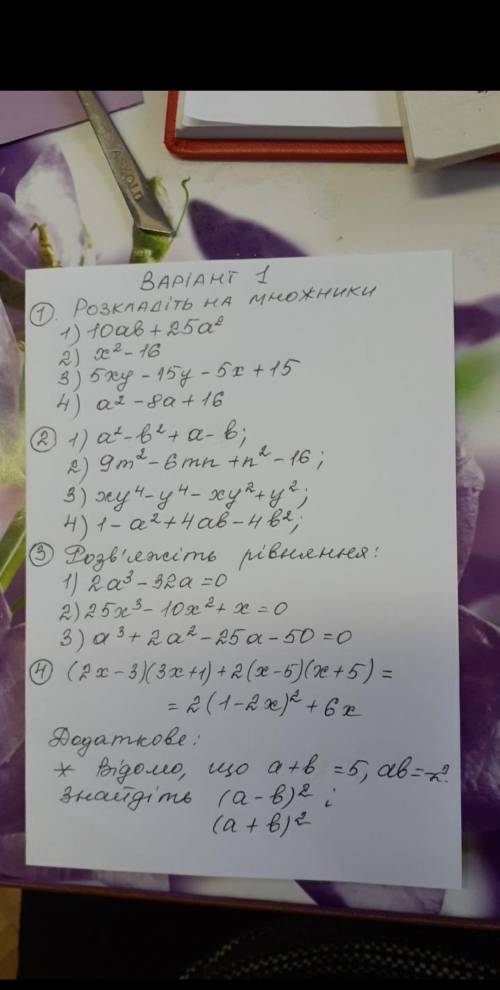 ВАРІАНТ 1
① РОЗКЛАДІТЬ НА МНОЖНИКИ
1) 10ab + 25a²
2) x² - 16
3) 5xy - 15y - 5x + 15
4) a² - 8a + 16
② 1) a² - b² + a - b;
2) 9m² - 6mn + n² - 16;
3) xy⁴ - y⁴ - xy² + y²;
4) 1 - a² + 4ab - 4b²;
③ Розв'яжіть рівняння:
1) 2a³ - 32a = 0
2) 25x³ - 10x² + x = 0
3) a³ + 2a² - 25a - 50 = 0
④ (2x - 3)(3x + 1) + 2(x - 5)(x + 5) =
= 2(1 - 2x)² + 6x
Додаткове:
* Відомо, що a + b = 5, ab = -2.
Знайдіть (a - b)² і
(a + b)²